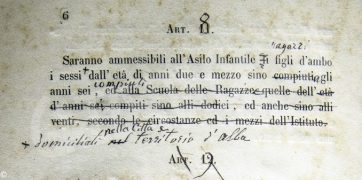 6
Art. 8
ragazzi
Saranno ammessibili all'Asilo Infantile I figli d'ambo
i sessi dall'età di anni due e mezzo sino compiuti gli
compiuti
anni sei, ed alla Scuola delle Ragazze quelle dell'età
d'anni sei compiti sino alli dodici, ed anche sino alli
venti, secondo le circostanze ed i mezzi dell'Istituto.
+ domiciliati nella Città e nel territorio d'Alba
Art. 12.